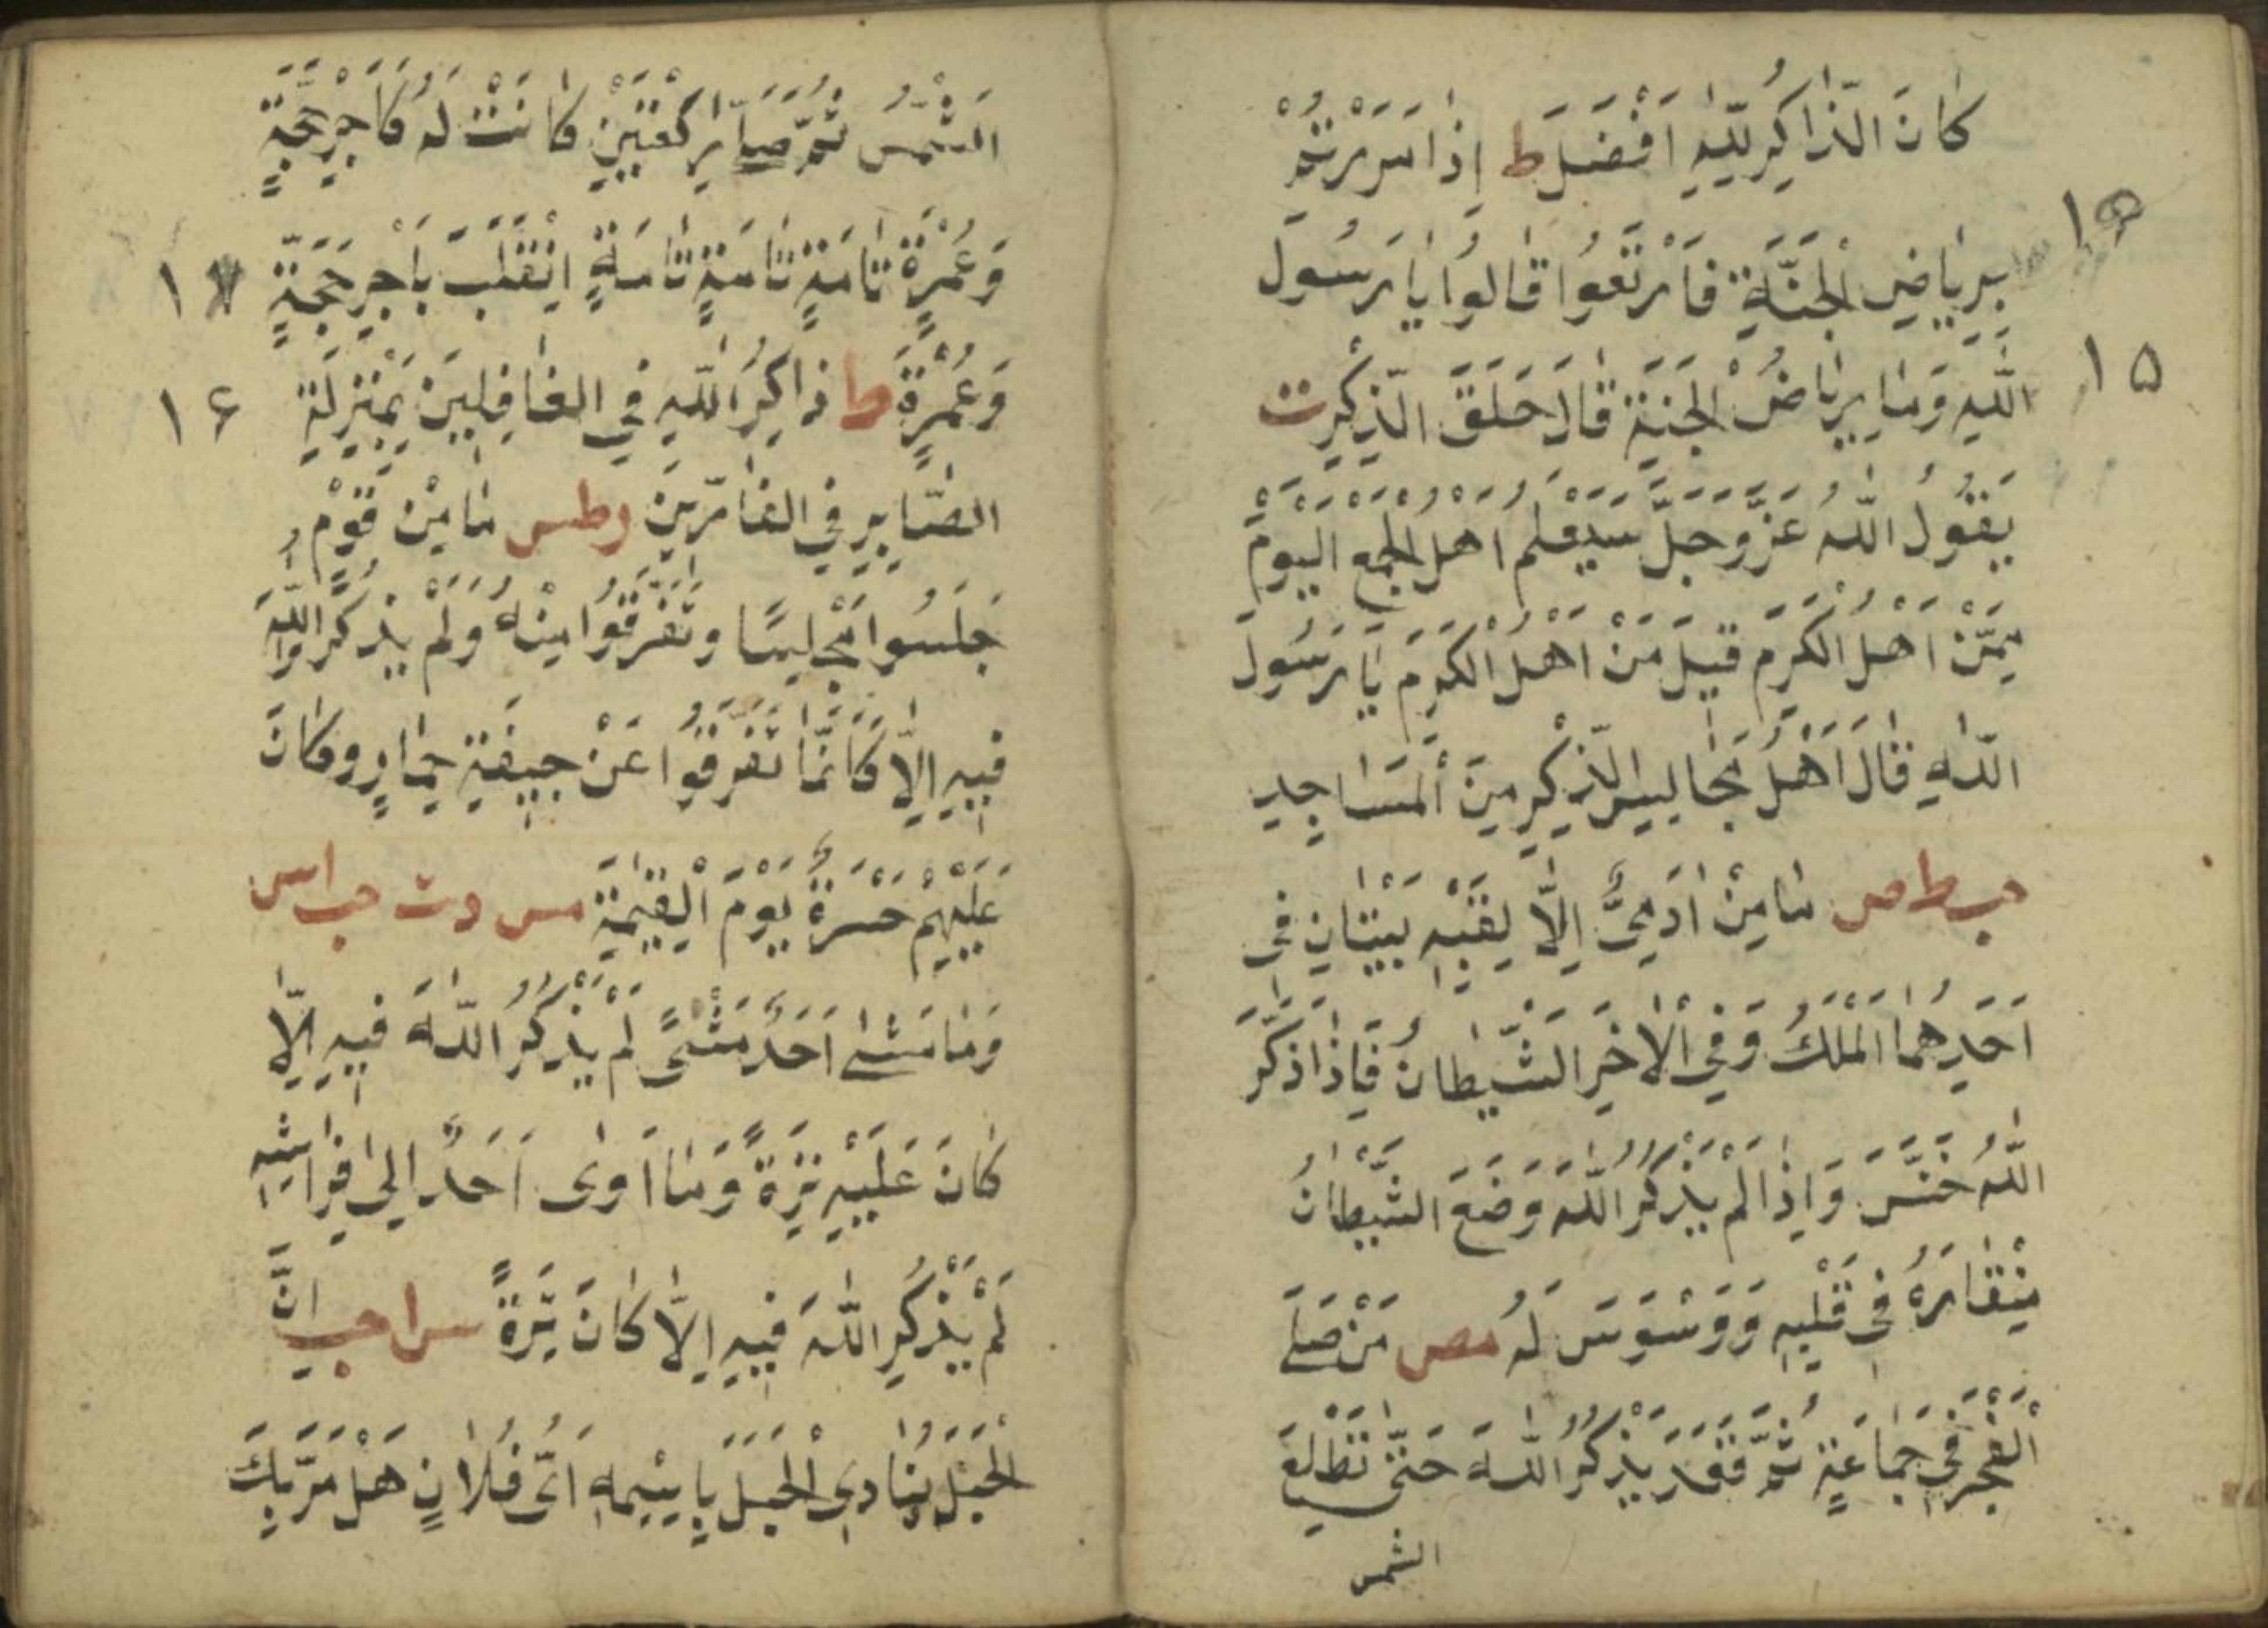 كَانَ الذَّاكِرُ لِلّٰهِ اَفْضَلَ ط اِذَا مَرَرْتُمْ
بِرِيَاضِ الْجَنَّةِ فَارْتَعُوا قَالُوا يَا رَسُولَ
اللّٰهِ وَمَا رِيَاضُ الْجَنَّةِ قَالَ حَلَقُ الذِّكْرِ ت
۱۵
يَقُولُ اللّٰهُ عَزَّ وَجَلَّ سَيَعْلَمُ اَهْلُ الْجَمْعِ الْيَوْمَ
مَنْ اَهْلُ الْكَرَمِ قِيلَ مَنْ اَهْلُ الْكَرَمِ يَا رَسُولَ
اللّٰهِ قَالَ اَهْلُ مَجَالِسِ الذِّكْرِ مِنَ الْمَسَاجِدِ
حب ط ص مَا مِنْ اٰدَمِيٍّ اِلَّا لِقَلْبِهِ بَيْتَانِ فِى
اَحَدِهِمَا الْمَلَكُ وَفِى الْاٰخَرِ الشَّيْطَانُ فَاِذَا ذَكَرَ
اللّٰهَ خَنَسَ وَاِذَا لَمْ يَذْكُرِ اللّٰهَ وَضَعَ الشَّيْطَانُ
مِنْقَارَهُ فِى قَلْبِهِ وَوَسْوَسَ لَهُ مص مَنْ صَلَّى
الْفَجْرَ فِى جَمَاعَةٍ ثُمَّ قَعَدَ يَذْكُرُ اللّٰهَ حَتّٰى تَطْلُعَ
الشمس
الشَّمْسُ ثُمَّ صَلّٰى رَكْعَتَيْنِ كَانَتْ لَهُ كَاَجْرِ حَجَّةٍ
وَعُمْرَةٍ تَامَّةٍ تَامَّةٍ تَامَّةٍ اِنْقَلَبَ بِاَجْرِ حَجَّةٍ
وَعُمْرَةٍ ط ذَاكِرُ اللّٰهِ فِى الْغَافِلِينَ بِمَنْزِلَةِ
۱۶
الصَّابِرِ فِى الْفَارِّينَ ر طس مَا مِنْ قَوْمٍ
جَلَسُوا مَجْلِسًا وَتَفَرَّقُوا مِنْهُ وَلَمْ يَذْكُرُوا اللّٰهَ
فِيهِ اِلَّا كَاَنَّمَا تَفَرَّقُوا عَنْ جِيفَةِ حِمَارٍ وَكَانَ
عَلَيْهِمْ حَسْرَةً يَوْمَ الْقِيٰمَةِ مس د ت حب ا س
وَمَا مَشٰى اَحَدٌ مَمْشًى لَمْ يَذْكُرِ اللّٰهَ فِيهِ اِلَّا
كَانَ عَلَيْهِ تِرَةً وَمَا اَوٰى اَحَدٌ اِلٰى فِرَاشِهِ
لَمْ يَذْكُرِ اللّٰهَ فِيهِ اِلَّا كَانَ تِرَةً س ا حب اِنَّ
الْجَبَلَ يُنَادِى الْجَبَلَ بِاسْمِهِ اَىْ فُلَانٍ هَلْ مَرَّ بِكَ